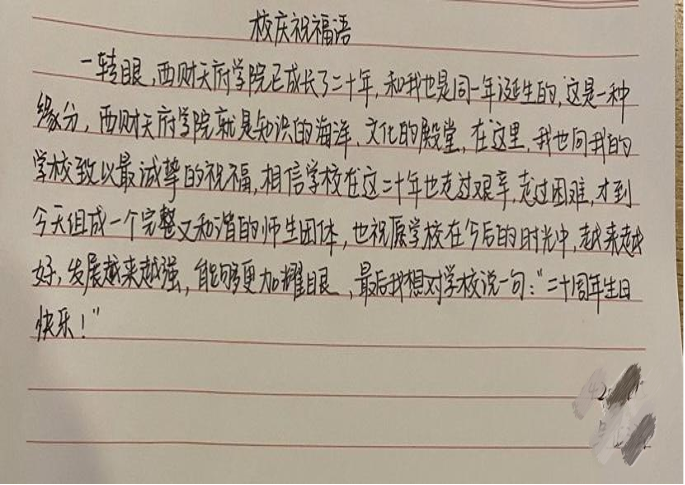 校庆祝福语
一转眼,西财天府学院已成长了二十年,和我也是同一年诞生的,这是一种
缘分,西财天府学院就是知识的海洋、文化的殿堂,在这里,我也向我的
学校致以最诚挚的祝福,相信学校在这二十年也走过艰辛,走过困难,才到
今天组成一个完整又和谐的师生团体,也祝愿学校在今后的时光中,越来越
好,发展越来越强,能够更加耀眼,最后我想对学校说一句:“二十周年生日
快乐!”